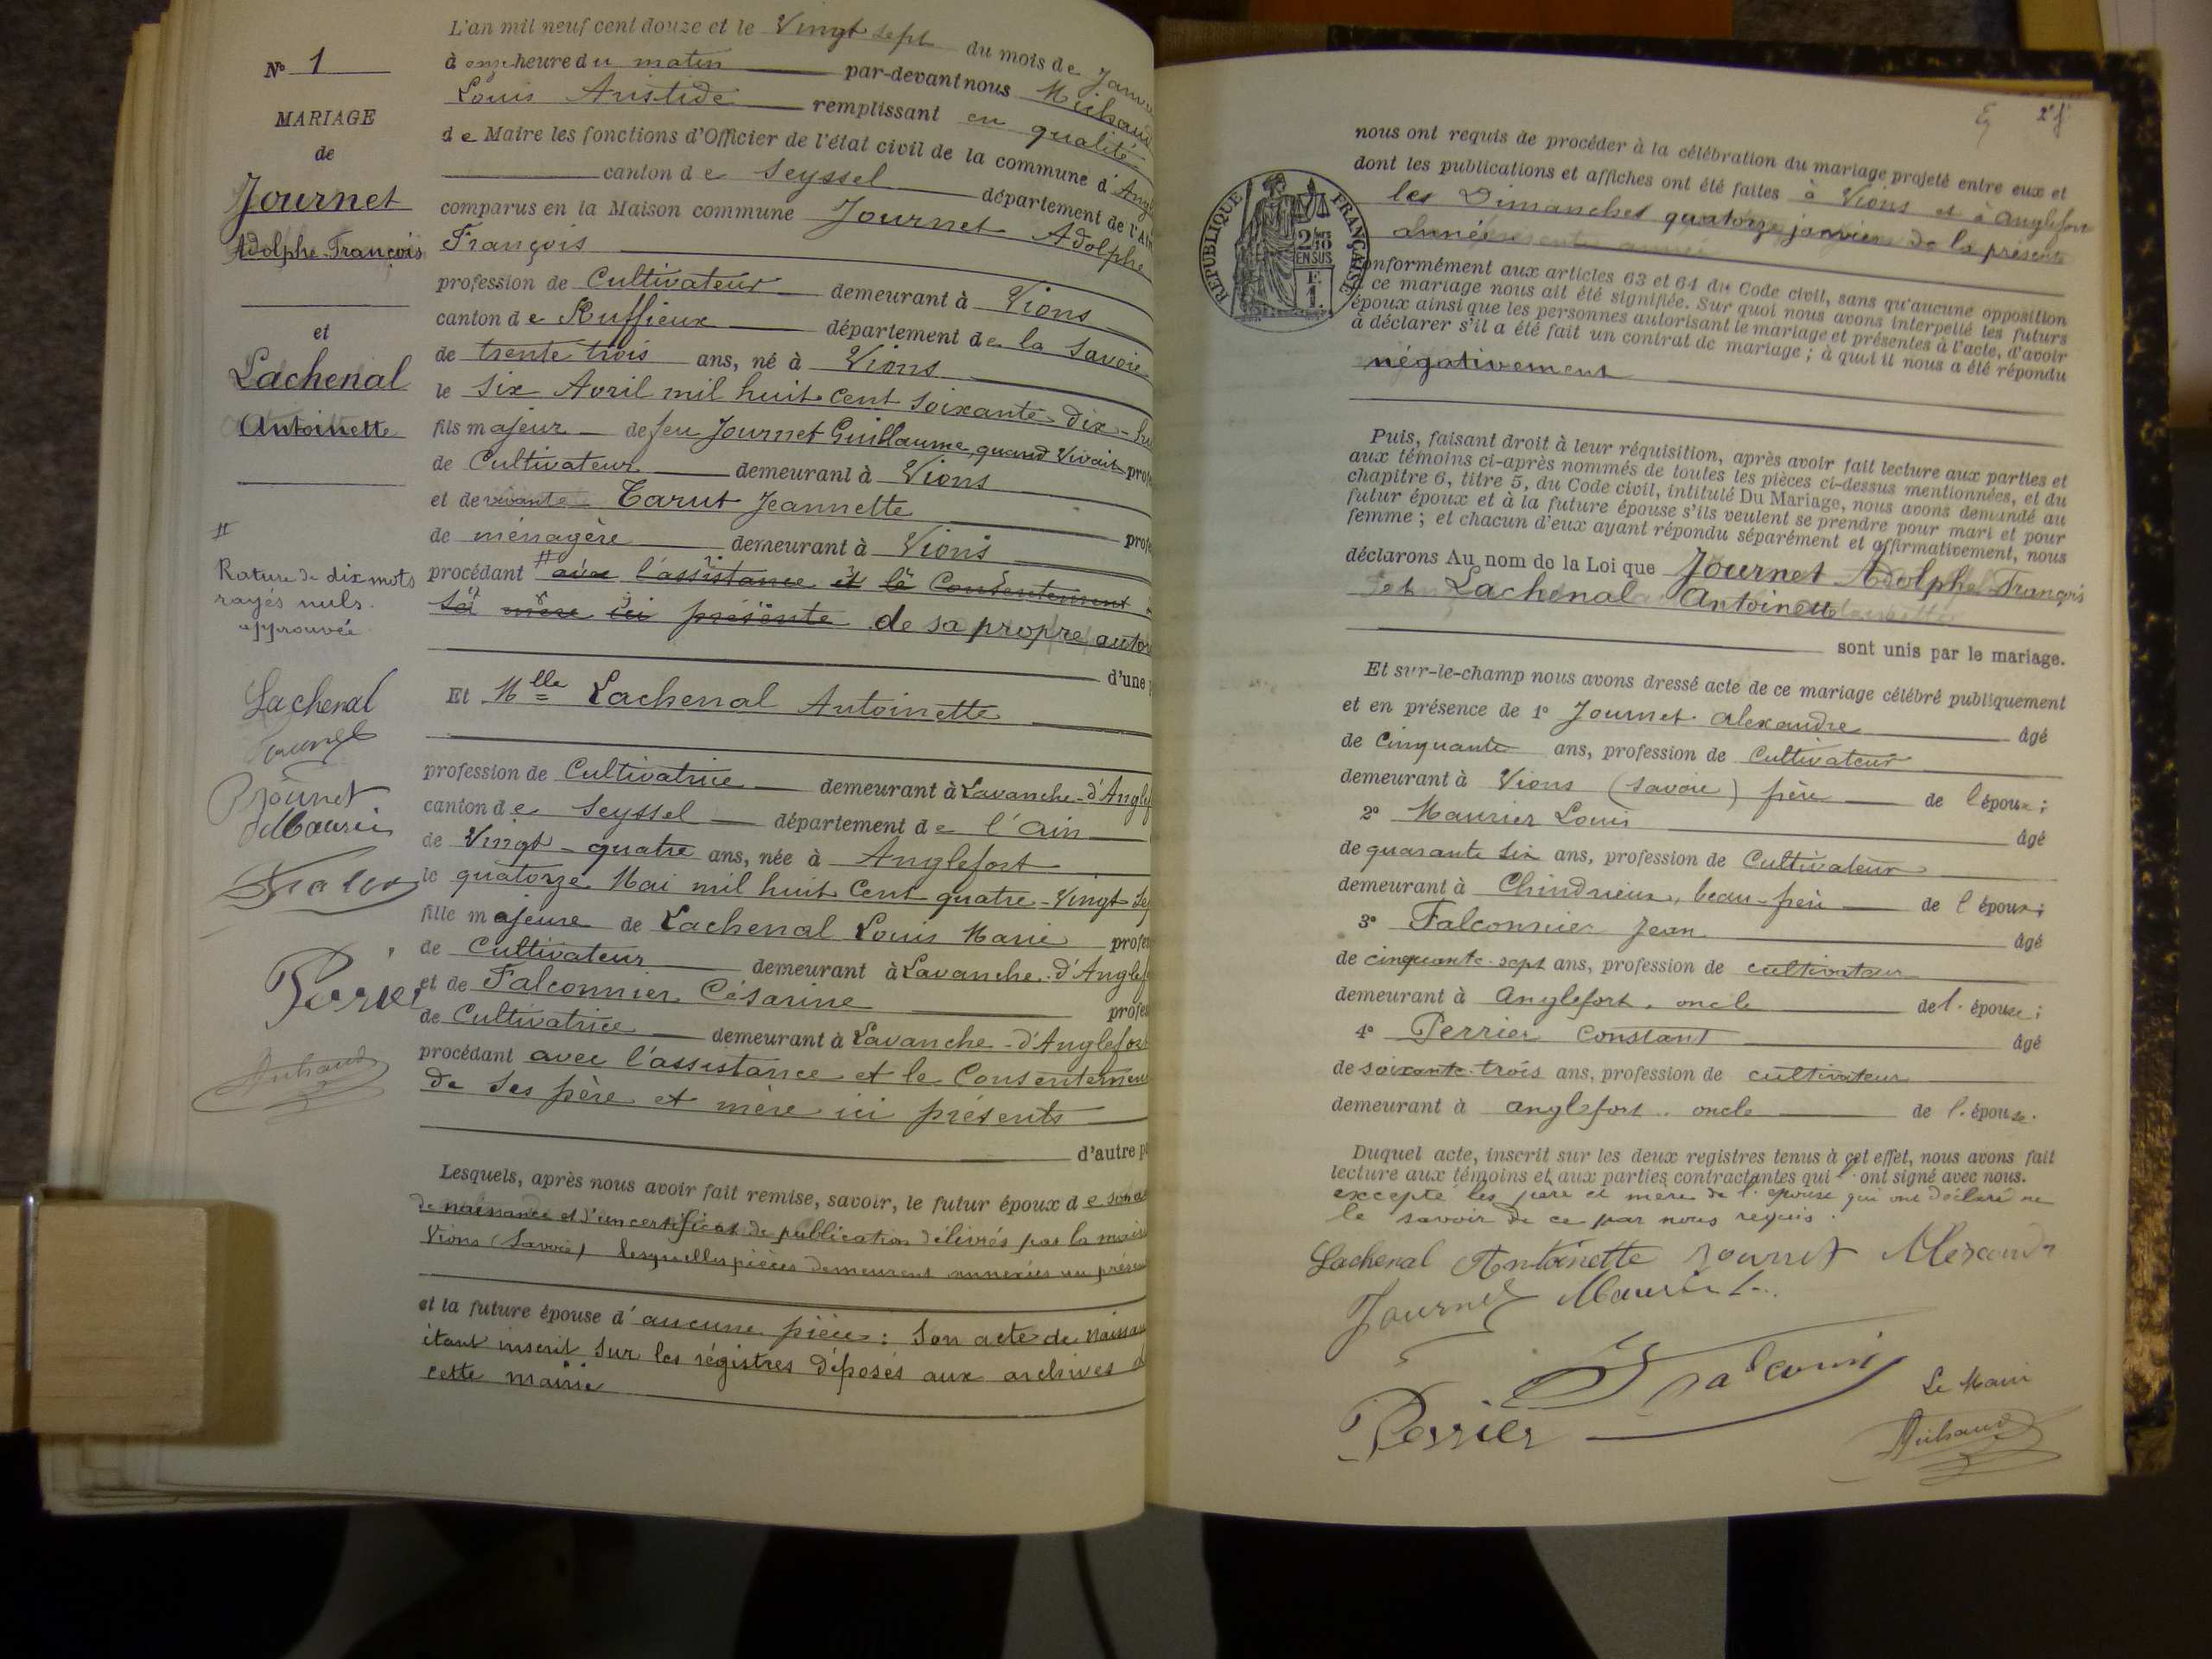 L'an mil neuf cent douze et le Vingt sept du mois de Janv
à onze heure du matin par-devant nous Michaud
Louis Aristide remplissant en qualité
de Maire les fonctions d'Officier de l'état civil de la commune d'Angl
canton de Seyssel département de l'Ain
comparus en la Maison commune Journet Adolphe
François
profession de Cultivateur demeurant à Vions
canton de Ruffieux département de la Savoie
de trente trois ans, né à Vions
le six Avril mil huit cent soixante-dix-hu
fils majeur de feu Journet Guillaume, quand vivait profe
de Cultivateur demeurant à Vions
et de vivante Tarut Jeannette
profe
de ménagère demeurant à Vions
procédant # avec l'assistance et le Consentement
sa mère ici présente de sa propre autor
d'une p
Et Mlle Lachenal Antoinette
profession de Cultivatrice demeurant à Lavanche-d'Anglef
canton de Seyssel département de l'Ain
de Vingt-quatre ans, née à Anglefort
le quatorze Mai mil huit Cent quatre-Vingt-Sep
fille majeure de Lachenal Louis Marie profes
de Cultivateur demeurant à Lavanche-d'Anglef
et de Falconnier Césarine profes
de Cultivatrice demeurant à Lavanche-d'Anglefor
procédant avec l'assistance et le Consentement
de ses père et mère ici présents
d'autre pa
Lesquels, après nous avoir fait remise, savoir, le futur époux de son ac
de naissance et d'un certificat de publication délivrés par la mairie
Vions (Savoie) lesquelles pièces demeurent annexées au présen
et la future épouse d'aucune pièce: Son acte de naissan
étant inscrit sur les régistres déposés aux archives d
cette mairie
No 1
MARIAGE
de
Journet
Adolphe-François
et
Lachenal
Antoinette
#
Rature de dix mots
rayés nuls.
approuvée
Lachenal
Journet
Journet
Maurier
Falco
Perrier
Michaud
nous ont requis de procéder à la célébration du mariage projeté entre eux et
dont les publications et affiches ont été faites à Vions et à Anglefort
les Dimanches quatorze janvier de la présente
année
conformément aux articles 63 et 64 du Code civil, sans qu'aucune opposition
à ce mariage nous ait été signifiée. Sur quoi nous avons interpellé les futurs
époux ainsi que les personnes autorisant le mariage et présentes à l'acte, d'avoir
à déclarer s'il a été fait un contrat de mariage ; à quoi il nous a été répondu
négativement
RÉPUBLIQUE FRANÇAISE
2/10
EN SUS
F.
1.
Puis, faisant droit à leur réquisition, après avoir fait lecture aux parties et
aux témoins ci-après nommés de toutes les pièces ci-dessus mentionnées, et du
chapitre 6, titre 5, du Code civil, intitulé Du Mariage, nous avons demandé au
futur époux et à la future épouse s'ils veulent se prendre pour mari et pour
femme ; et chacun d'eux ayant répondu séparément et affirmativement, nous
déclarons Au nom de la Loi que Journet Adolphe-François
et Lachenal Antoinette
sont unis par le mariage.
Et sur-le-champ nous avons dressé acte de ce mariage célébré publiquement
et en présence de 1° Journet Alexandre âgé
de Cinquante ans, profession de Cultivateur
demeurant à Vions (Savoie) frère de l'époux;
2° Maurier Louis âgé
de quarante six ans, profession de Cultivateur
demeurant à Chindrieux, beau-frère de l'époux;
3° Falconnier Jean âgé
de cinquante-sept ans, profession de cultivateur
demeurant à Anglefort, oncle de l'épouse;
4° Perrier Constant âgé
de soixante-trois ans, profession de cultivateur
demeurant à Anglefort, oncle de l'épouse.
Duquel acte, inscrit sur les deux registres tenus à cet effet, nous avons fait
lecture aux témoins et aux parties contractantes qui ont signé avec nous.
excepté les père et mère de l'épouse qui ont déclaré ne
le savoir de ce par nous requis.
Lachenal Antoinette Journet Alexandr
Journet Maurier L.
Falconni
Le Maire
Perrier
Michaud